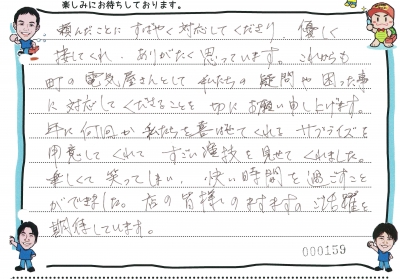 楽しみにお待ちしております。
頼んだことに すばやく 対応してくださり、優しく
接してくれ、ありがたく思っています。これからも
町の電気屋さんとして 私たちの 疑問や困った事
に対応してくださることを 切にお願い申し上げます。
年に何回か 私たちを喜ばせてくれる サプライズを
用意してくれて すごい演技を見せてくれました。
楽しくて 笑ってしまい、快い時間を過ごすこと
ができました。店の皆様のますますのご活躍を
期待しています。
000159